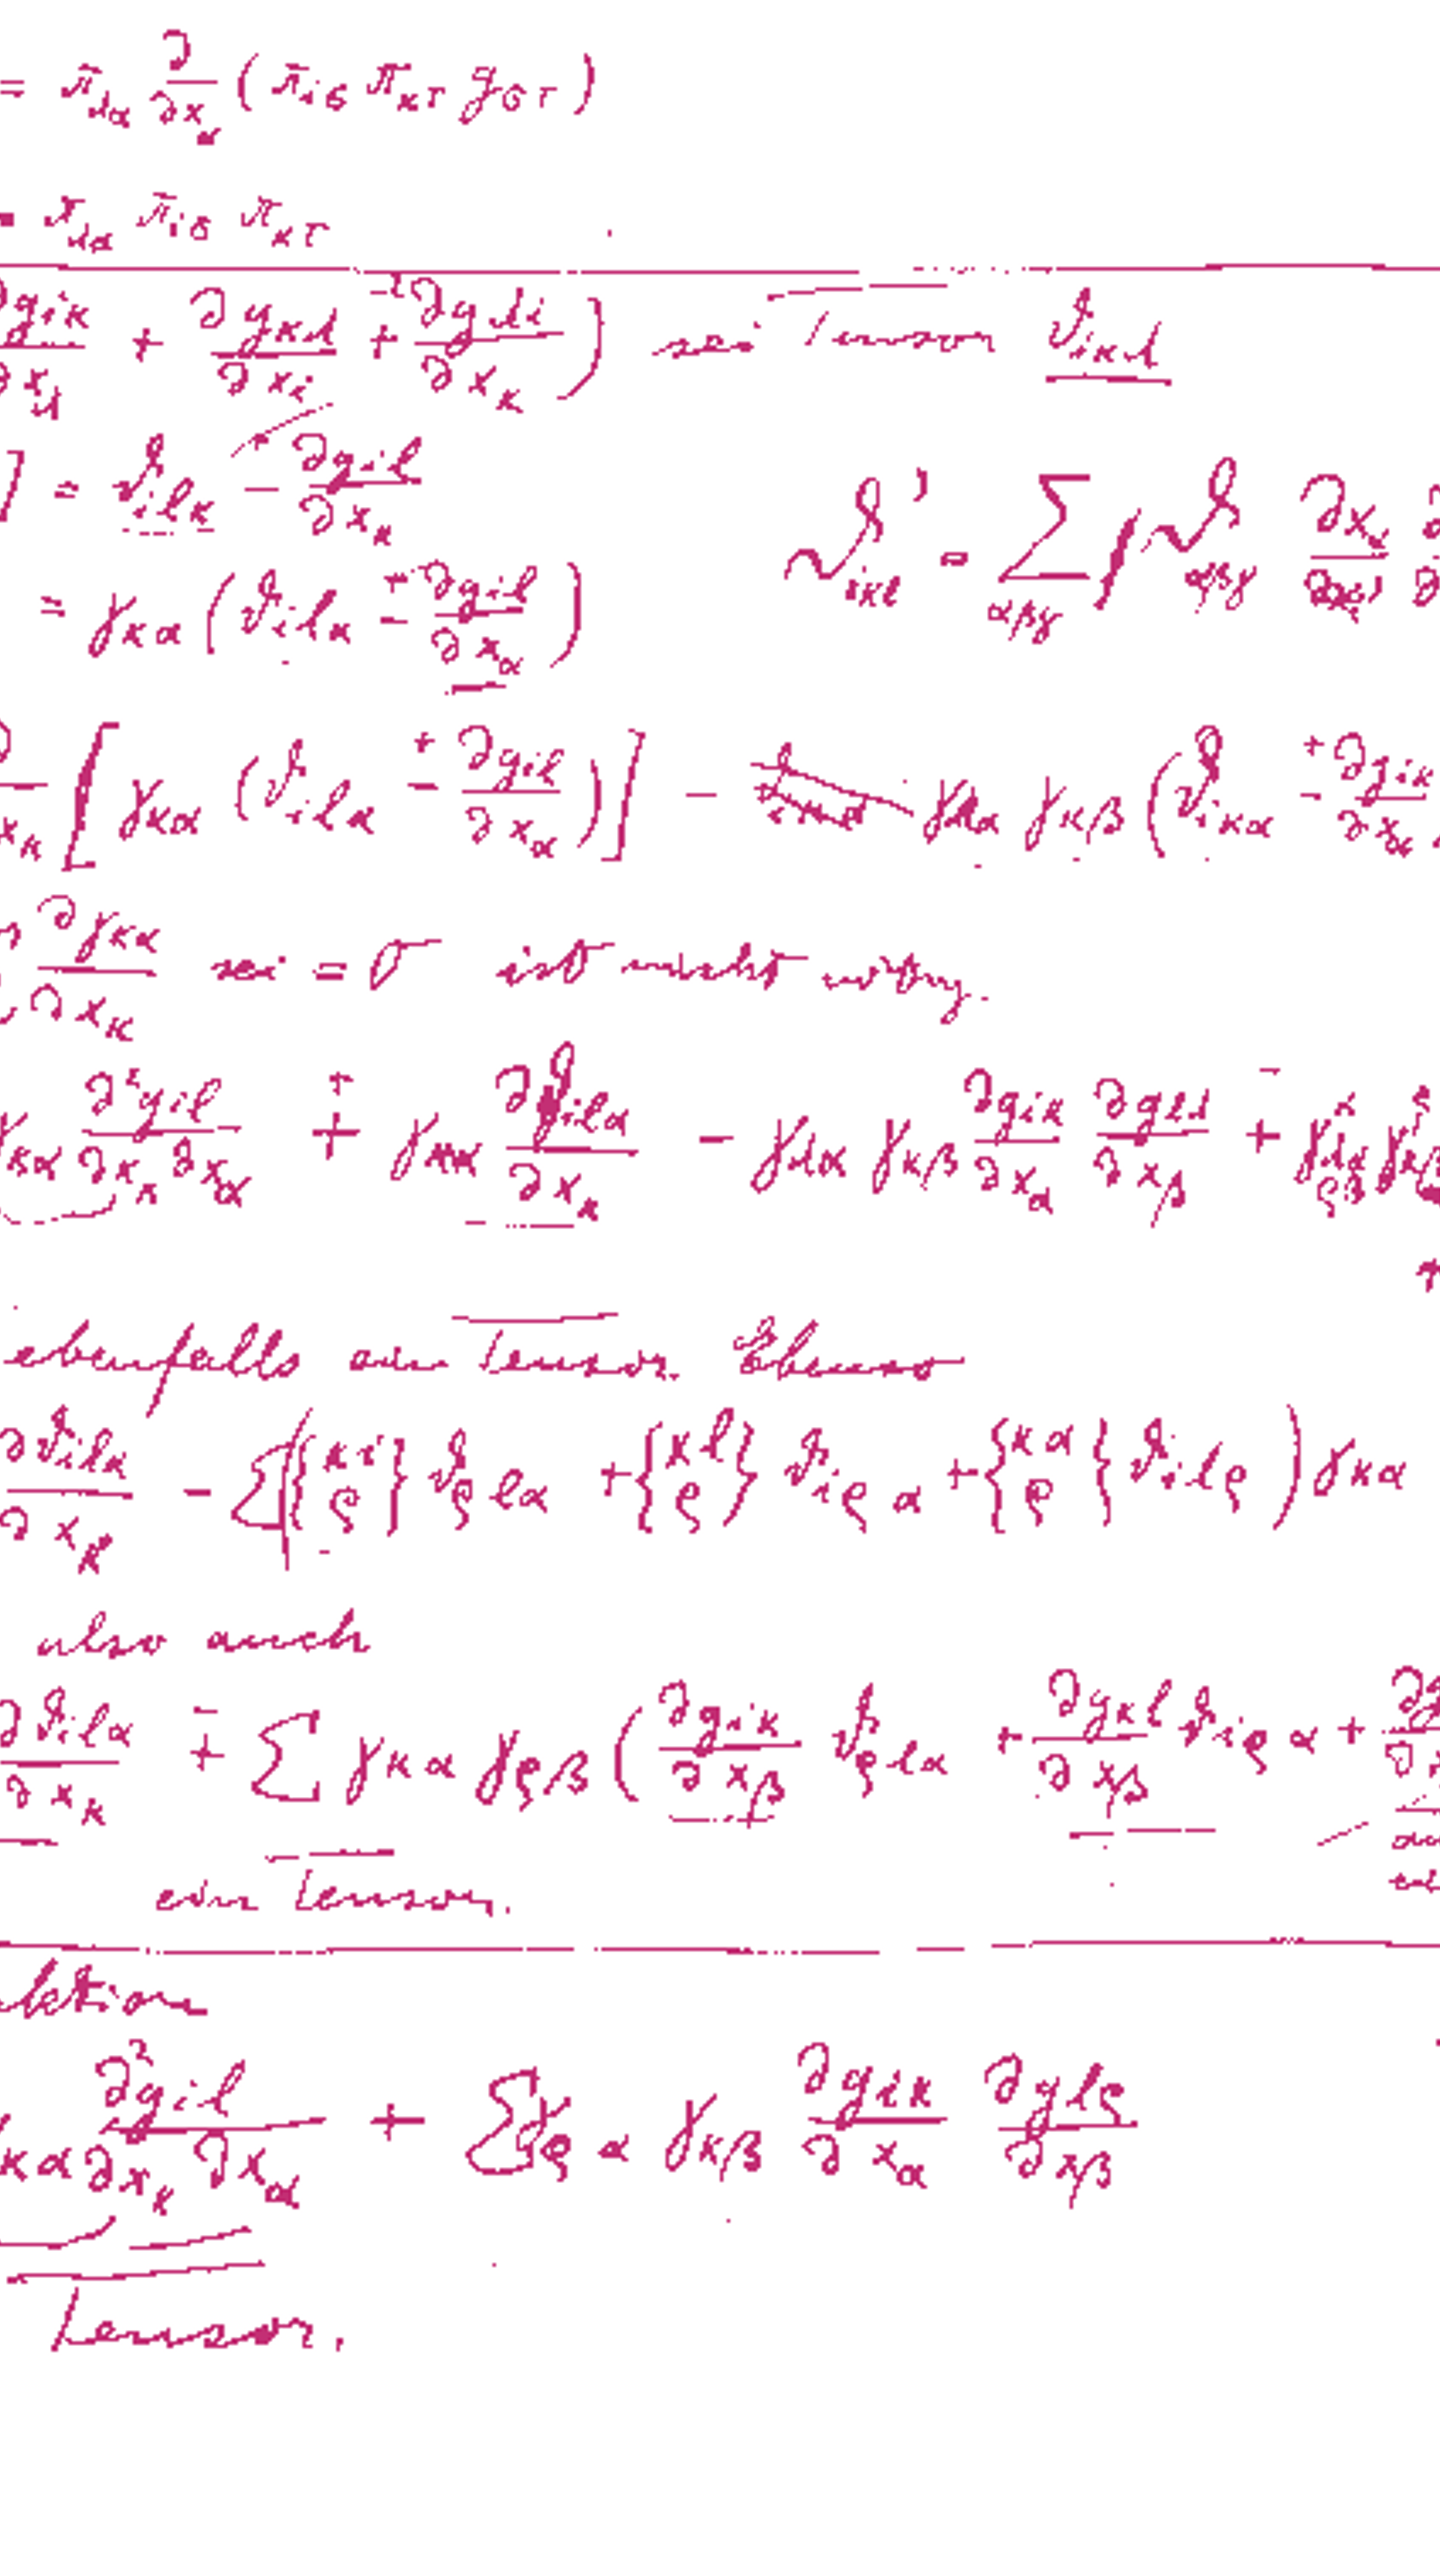 = π̄_{λα} ∂/∂x_α ( π̄_{iσ} π̄_{κτ} g_{στ} )
π̄_{λα} π̄_{iσ} π̄_{κτ}
∂g_{iκ}/∂x_λ + ∂g_{κλ}/∂x_i + ∂g_{λi}/∂x_κ ) sei Tensor ϑ_{iκλ}
] = ϑ_{ilκ} − ∂g_{il}/∂x_κ
ϑ'_{iκl} = Σ_{αβγ} ϑ_{αβγ} ∂x_α/∂x_i'
= γ_{κα} ( ϑ_{ilα} ∓ ∂g_{il}/∂x_α )
/∂x_κ [ γ_{κα} ( ϑ_{ilα} ∓ ∂g_{il}/∂x_α ) ] − γ_{λα} γ_{κβ} ( ϑ_{iκα} ∓ ∂g_{iκ}/∂x_α
∂γ_{κα}/∂x_κ sei = 0 ist nicht nötig.
γ_{κα} ∂²g_{il}/∂x_κ∂x_α + γ_{κα} ∂ϑ_{ilα}/∂x_κ − γ_{λα} γ_{κβ} ∂g_{iκ}/∂x_α ∂g_{lλ}/∂x_β +
ebenfalls ein Tensor. Ebenso
∂ϑ_{ilα}/∂x_κ − Σ( {κi ρ} ϑ_{ρlα} + {κl ρ} ϑ_{iρα} + {κα ρ} ϑ_{ilρ} ) γ_{κα}
also auch
∂ϑ_{ilα}/∂x_κ ∓ Σ γ_{κα} γ_{ρβ} ( ∂g_{iκ}/∂x_β ϑ_{ρlα} + ∂g_{κl}/∂x_β ϑ_{iρα} +
ein Tensor.
ktion
κα ∂²g_{il}/∂x_κ∂x_α + Σ γ_{ρα} γ_{κβ} ∂g_{iκ}/∂x_α ∂g_{lρ}/∂x_β
Tensor.